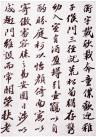 衡宇載欣載奔僮僕歡迎稚子
候門三徑就荒松菊猶存攜
幼入室有酒盈樽引壺觴以自
酌眄庭柯以怡顏倚南窗以
寄傲審容膝之易安園日涉以
成趣門雖設而常關策扶老